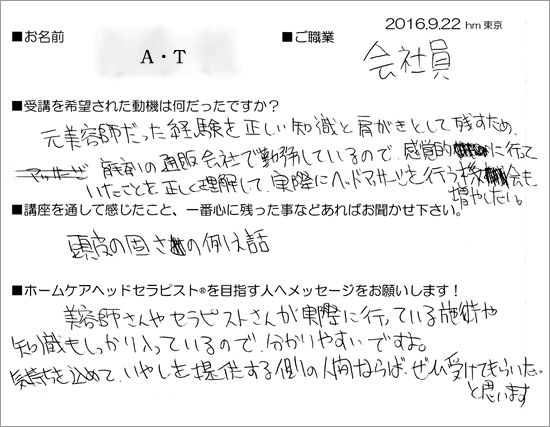 2016.9.22 hm東京
■お名前
A・T
■ご職業
会社員
■受講を希望された動機は何だったですか?
元美容師だった経験を正しい知識と肩がきとして残すため。
育毛剤の通販会社で勤務しているので、感覚的に行って
いたことを正しく理解して、実際にヘッドマッサージを行う機会も
増やしたい。
■講座を通して感じたこと、一番心に残った事などあればお聞かせ下さい。
頭皮の固さの例え話
■ホームケアヘッドセラピスト®を目指す人へメッセージをお願いします!
美容師さんやセラピストさんが実際に行っている施術や
知識もしっかり入っているので、分かりやすいですよ。
気持ちを込めて、いやしを提供する側の人間ならば、ぜひ受けてもらいたい
と思います